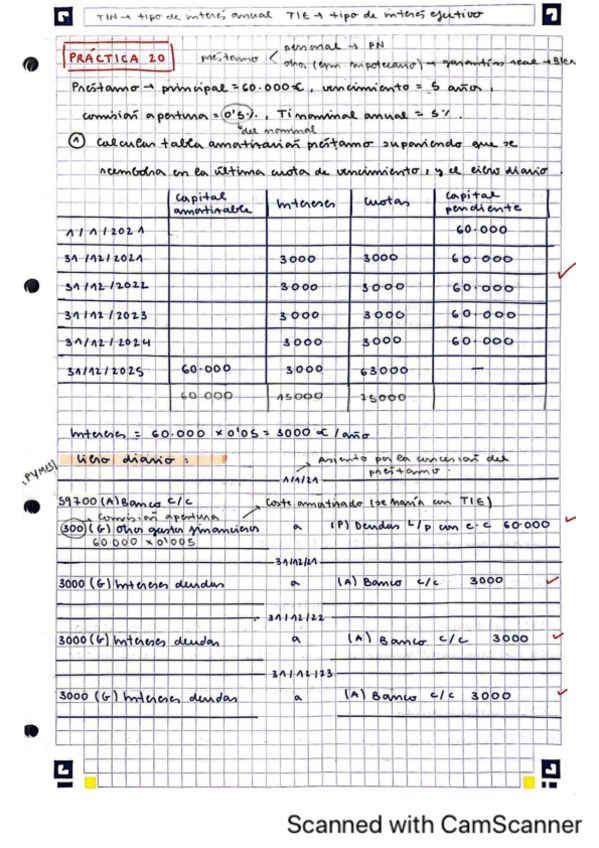 TIN → tipo de interés anual TIE → tipo de interés efectivo
PRÁCTICA 20
préstamo < personal → PN
otro, (ejm. hipotecario) → garantías real → Bien
Préstamo → principal = 60.000 €, vencimiento = 5 años,
comisión apertura = 0'5%, Ti nominal anual = 5%.
del nominal
① Calcular tabla amortización préstamo suponiendo que se
reembolsa en la última cuota de vencimiento, y el libro diario.
capital amortizable intereses cuotas capital pendiente
1/1/2021 60.000
31/12/2021 3000 3000 60.000
31/12/2022 3000 3000 60.000
31/12/2023 3000 3000 60.000
31/12/2024 3000 3000 60.000
31/12/2025 60.000 3000 63000 —
60.000 15000 75000
Intereses = 60.000 x 0'05 = 3000 €/año
libro diario:
(PYMES)
→ Asiento por la concesión del
préstamo.
1/1/21
59700 (A) Banco c/c
→ Coste amortizado (se haría con TIE)
→ comisión apertura
300 (G) Otros gastos financieros a (P) Deudas L/p con e.c 60.000
60.000 x 0'005
31/12/21
3000 (G) Intereses deudas a (A) Banco c/c 3000
31/12/22
3000 (G) Intereses deudas a (A) Banco c/c 3000
31/12/23
3000 (G) Intereses deudas a (A) Banco c/c 3000
Scanned with CamScanner